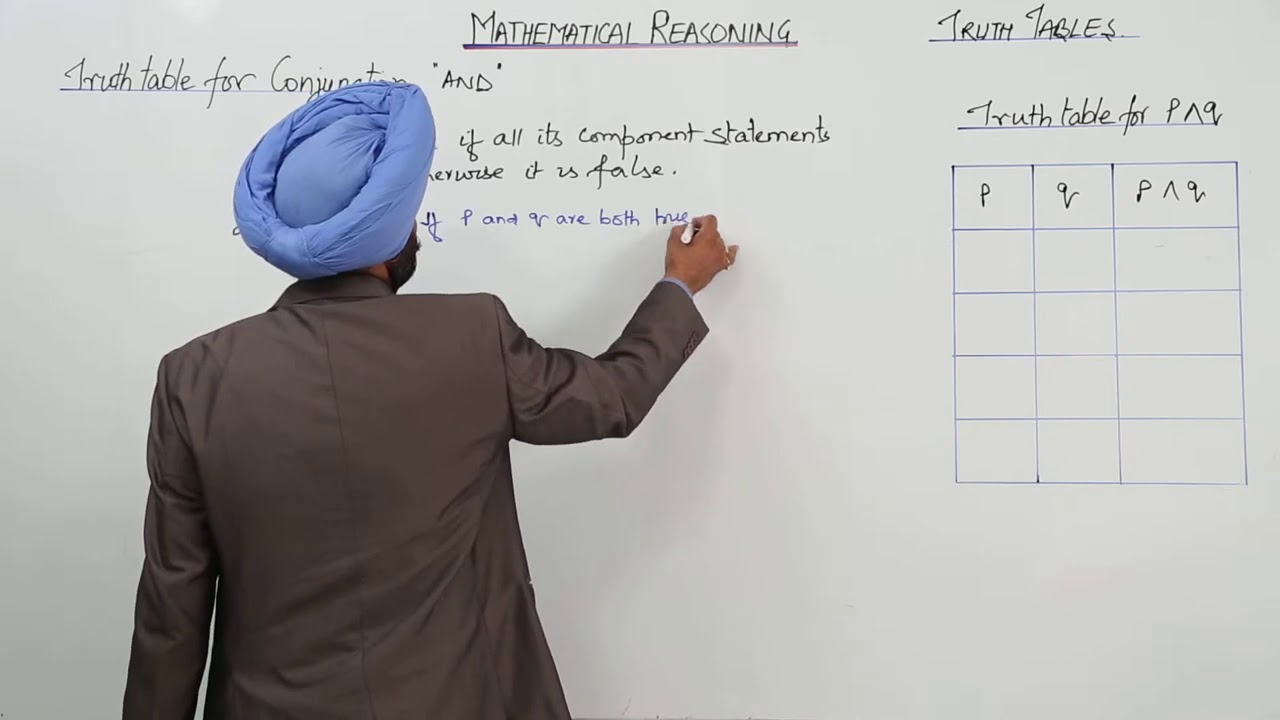 MATHEMATICAL REASONING
TRUTH TABLES.
Truth table for "AND"
if all its component statements
it is false.
If P and q are both true
Truth table for P∧q
P q P∧q